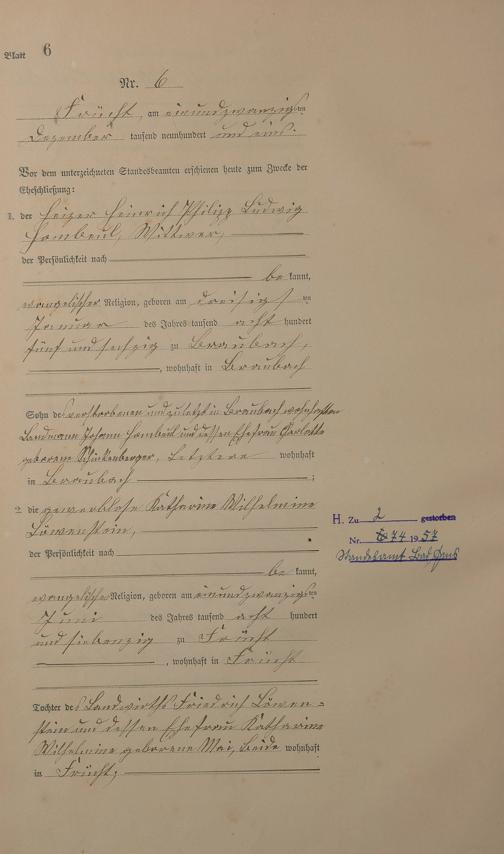 Blatt 6
Nr. 6
Frücht, am einundzwanzigsten
Dezember tausend neunhundert und eins.
Vor dem unterzeichneten Standesbeamten erschienen heute zum Zwecke der
Eheschließung:
1. der Heizer Heinrich Philipp Ludwig
Hombeul, Wittwer,
der Persönlichkeit nach
bekannt,
evangelischer Religion, geboren am dreisigsten
Januar des Jahres tausend acht hundert
fünf und sechzig zu Braubach,
, wohnhaft in Braubach
Sohn des verstorbenen und zuletzt in Braubach wohnhaften
Landmann Johann Hombeul und dessen Ehefrau Charlotte
geborenen Letztere wohnhaft
in Braubach ;
2. die gewerblose Katharine Wilhelmine
Löwenstein,
der Persönlichkeit nach
bekannt,
evangelische Religion, geboren am einundzwanzigsten
Juni des Jahres tausend acht hundert
und siebenzig zu Frücht
, wohnhaft in Frücht
Tochter des Landwirths Friedrich Löwen-
stein und dessen Ehefrau Katharine
Wilhelmine geborene Mai, beide wohnhaft
in Frücht,
H. Zu 2 gestorben
Nr. 74 1957
Standesamt Bad Ems